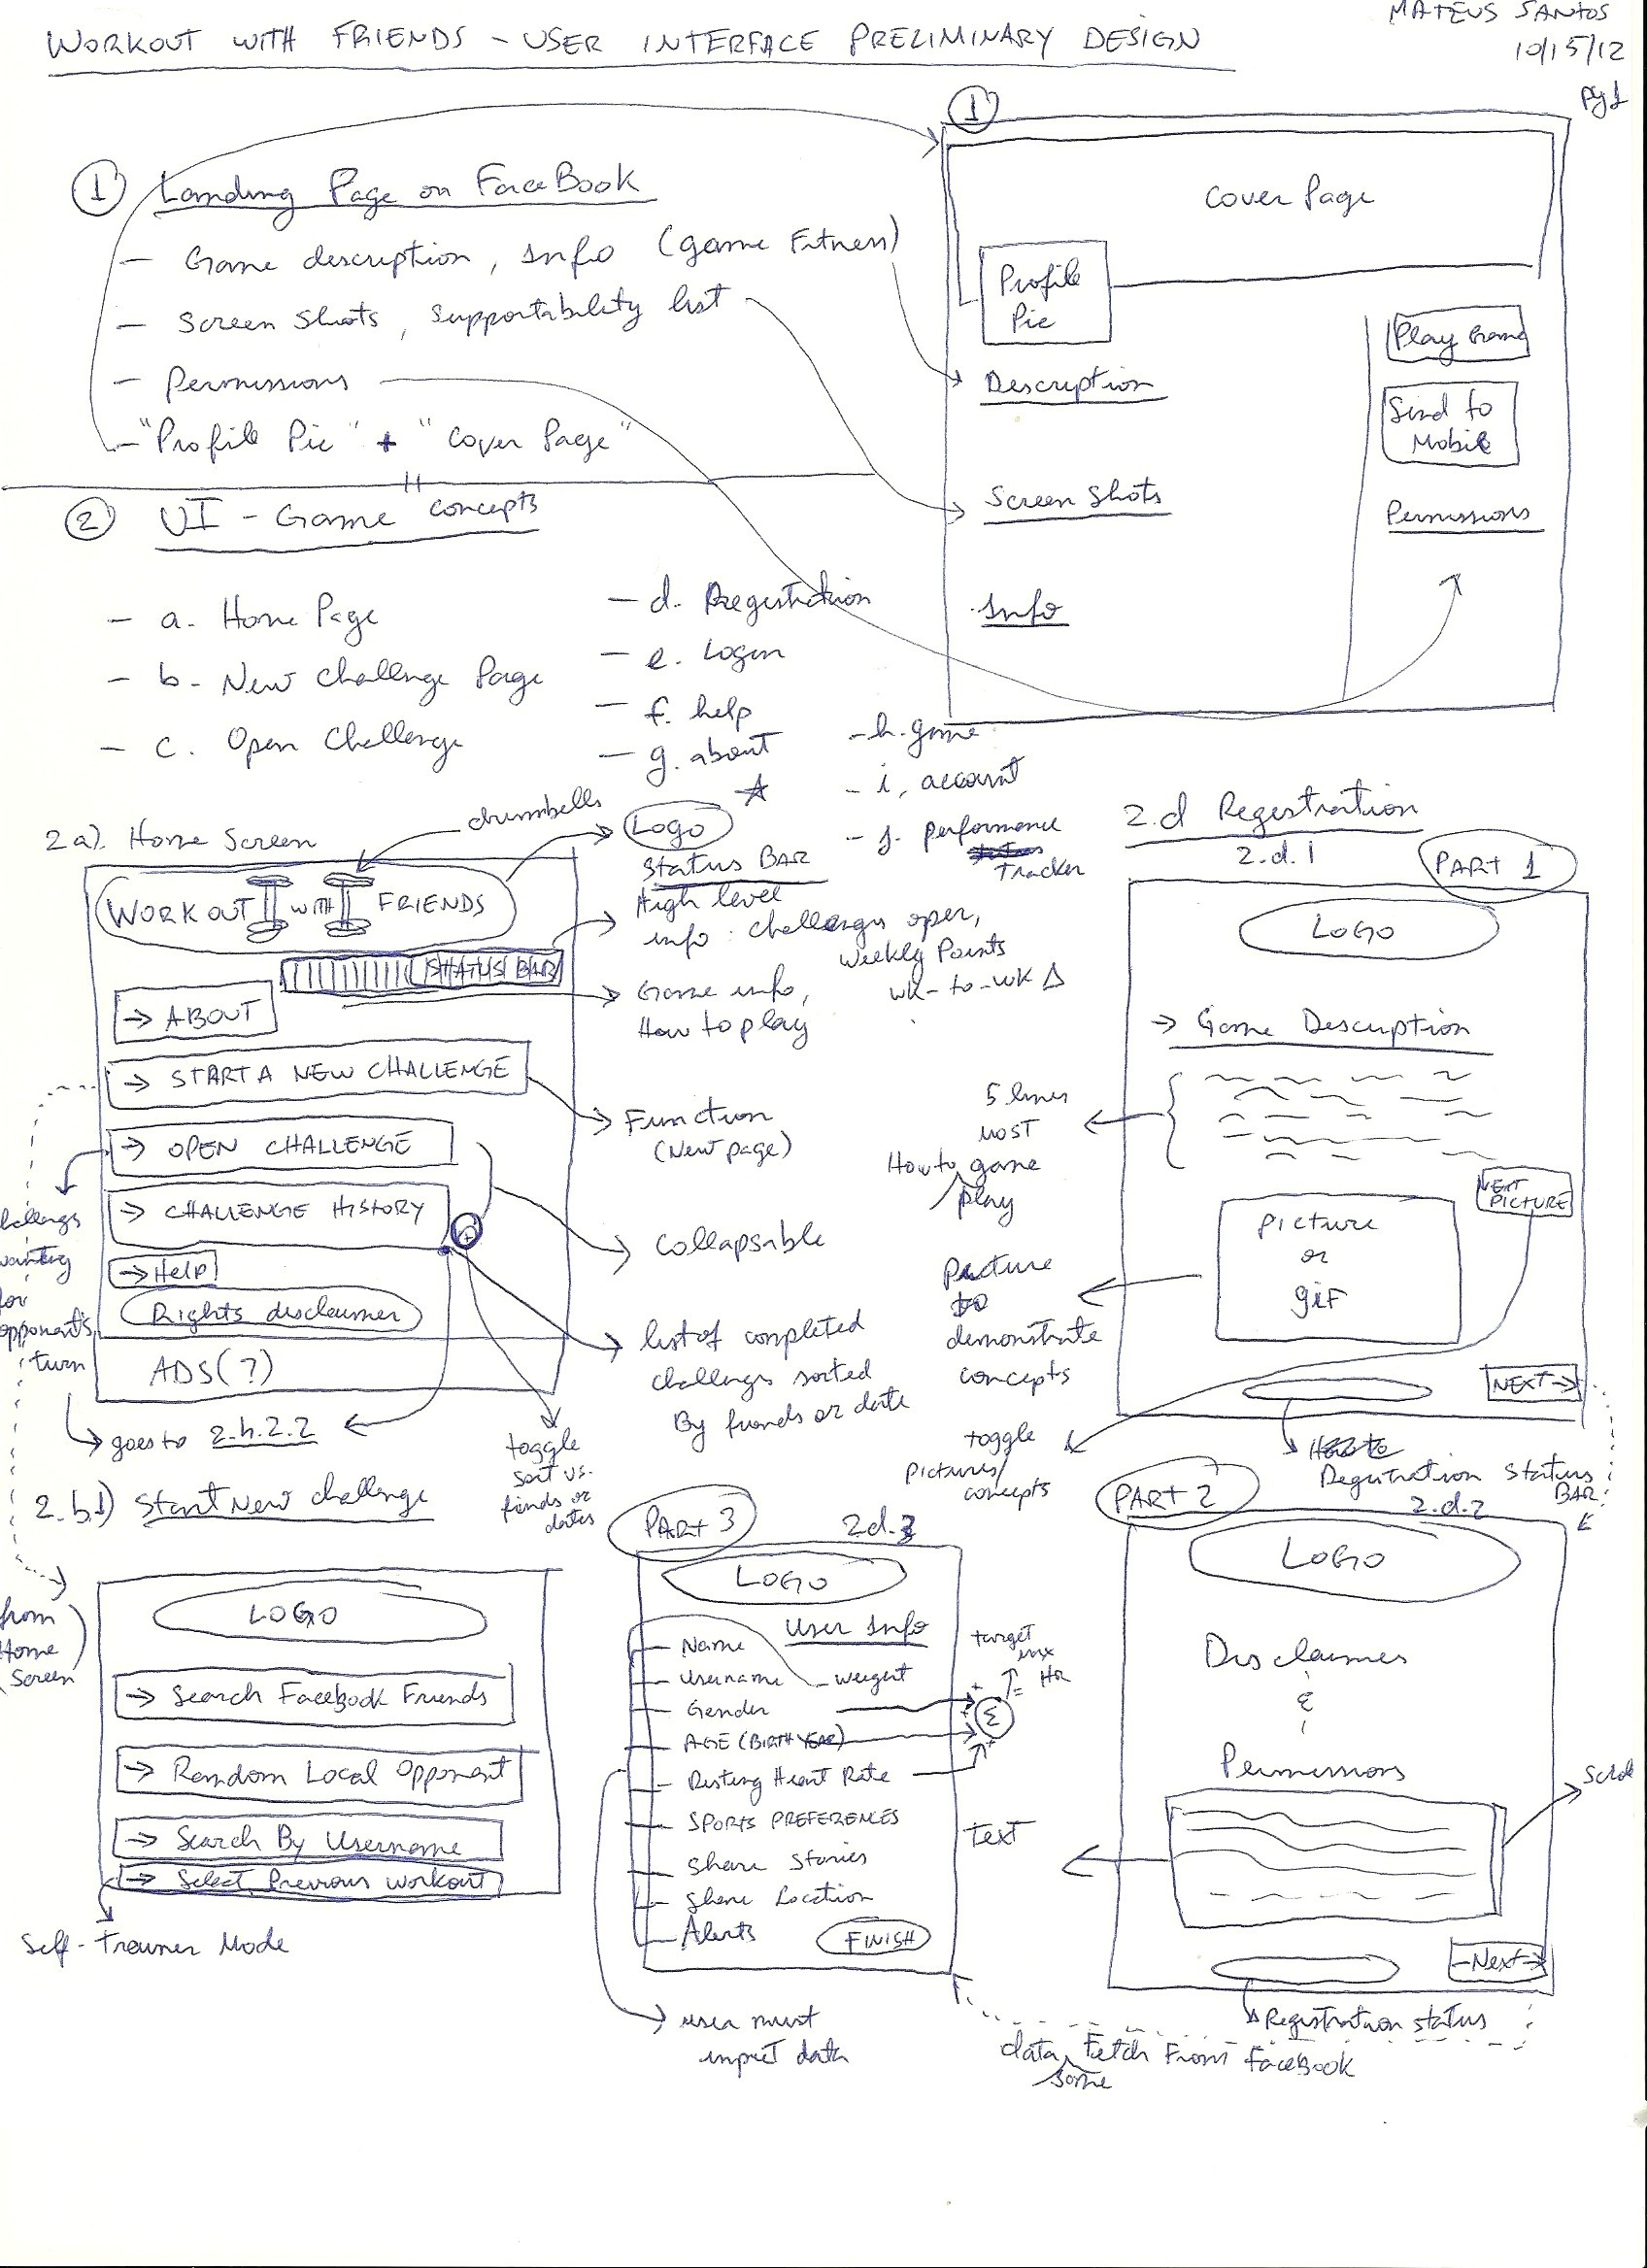 MATEUS SANTOS
10/15/12
pg 1
WORKOUT WITH FRIENDS - USER INTERFACE PRELIMINARY DESIGN
1 Landing Page on FaceBook
- Game description, Info (game Fitness)
- Screen Shots, supportability list
- Permissions
- "Profile Pic" + "Cover Page"
1
Cover Page
Profile
Pic
Play Game
Send to
Mobile
Description
Screen Shots
Permissions
Info
2 UI - Game concepts
- a. Home Page
- b - New Challenge Page
- c. Open Challenge
- d. Registration
- e. Login
- f. help
- g. about
- h. game
- i, account
- j. performance
Tracker
2a). Home Screen
dumbells
WORKOUT WITH FRIENDS
STATUS BAR
→ ABOUT
→ START A NEW CHALLENGE
→ OPEN CHALLENGE
→ CHALLENGE HISTORY
→ Help
Rights disclaimer
ADS(?)
Logo
Status BAR
High level
info: challenges open,
weekly Points
wk-to-wk Δ
Game info,
How to play
Function
(New page)
collapsable
list of completed
challenges sorted
By friends or date
toggle
sort vs.
friends or
dates
waiting
for
opponents
turn
goes to 2.h.2.2
2.b.1) Start New challenge
from
Home
Screen
LOGO
→ Search Facebook Friends
→ Random Local Opponent
→ Search By Username
→ Select Previous workout
Self-Trainer Mode
2.d Registration
2.d.1
PART 1
LOGO
→ Game Description
5 lines
most
How to game
play
NEXT
PICTURE
picture
or
gif
picture
to
demonstrate
concepts
toggle
pictures/
concepts
NEXT →
How to
Registration Status
BAR
PART 2
2.d.2
LOGO
Disclaimer
&
Permissions
Text
-Next→
Registration status
data Fetch From Facebook
some
PART 3
2d.3
LOGO
User Info
Name
Username
weight
Gender
AGE (BIRTH YEAR)
Resting Heart Rate
SPORTS PREFERENCES
Share Stories
Share Location
Alerts
FINISH
target
max
= HR
Σ
user must
input data